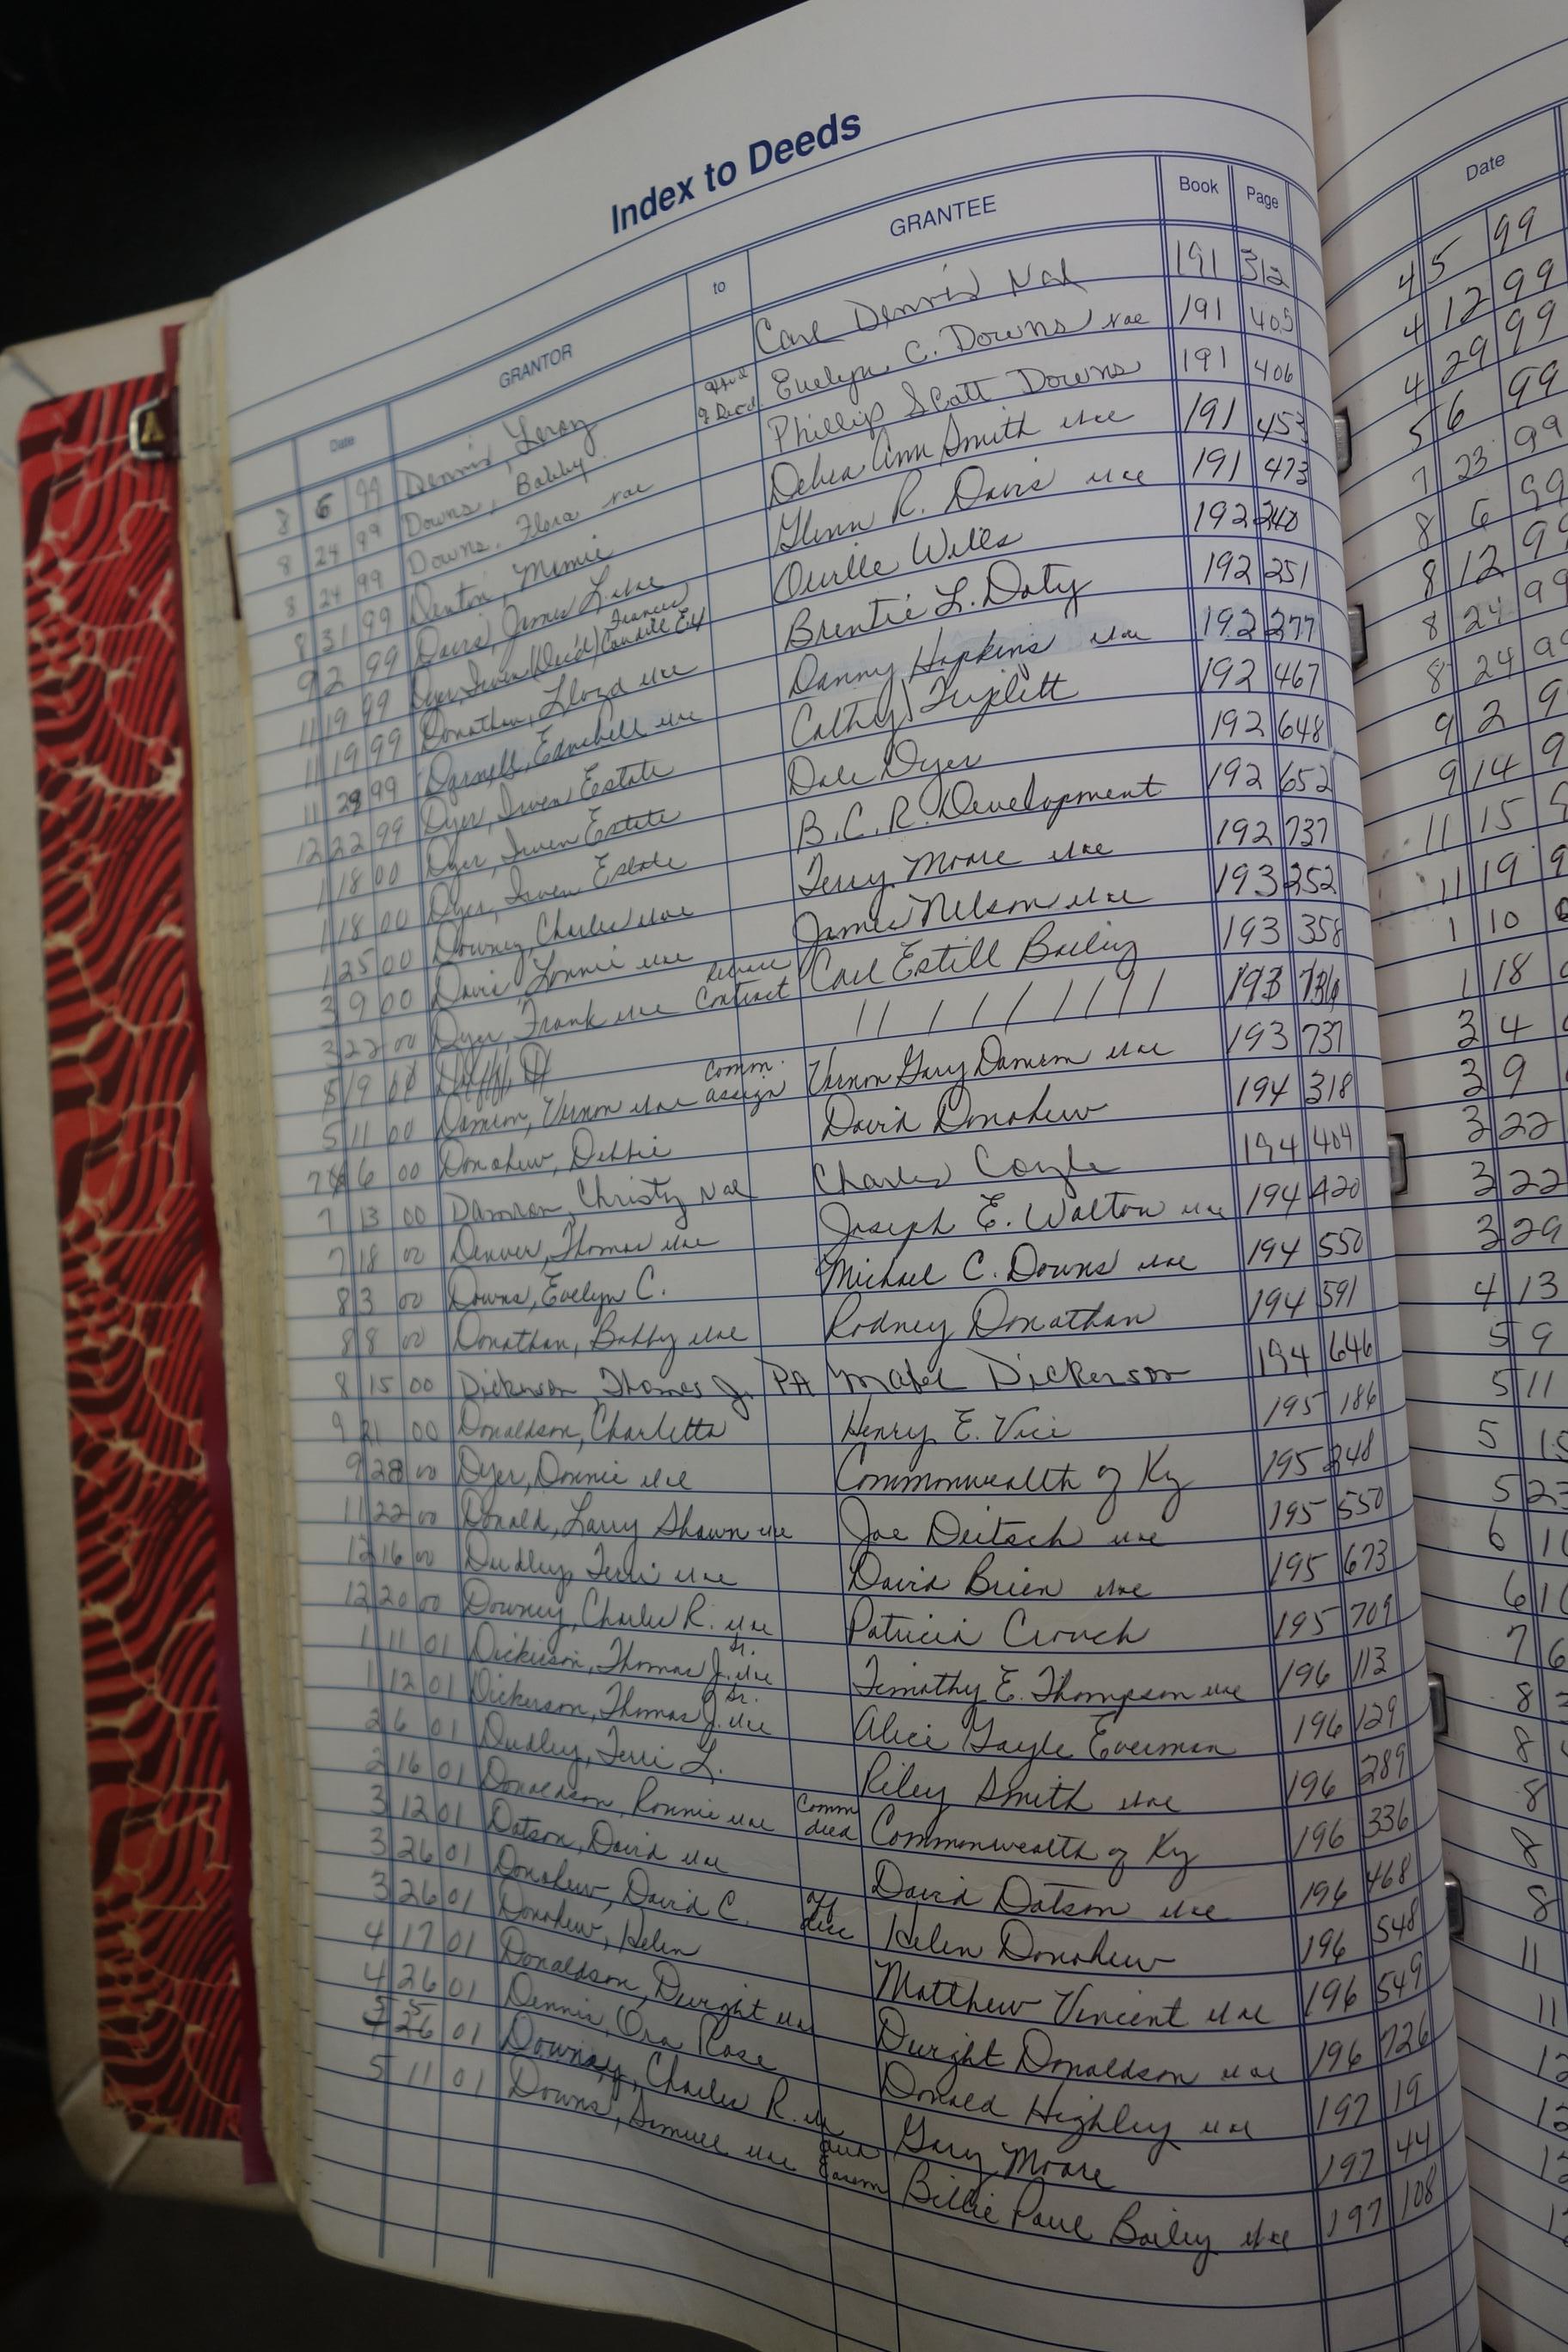 Index to Deeds
Date GRANTOR to GRANTEE Book Page
8 6 99 Dennis, Leroy Carl Dennis 191 312
8 24 99 Downs, Bobby Evelyn C. Downs 191 405
8 24 99 Downs, Flora Phillip Scott Downs 191 406
8 31 99 Denton, Mamie Debra Ann Smith 191 453
9 2 99 Davis, James Glenn R. Davis 191 473
11 19 99 Dyer, Irven (Dec'd) Frances Caudill Ex Orville Wells 192 240
11 19 99 Donathan, Lloyd Brentie L. Doty 192 251
11 29 99 Darnell, Danny Hopkins 192 277
12 22 99 Dyer, Irven Estate Cathy Triplett 192 467
1 18 00 Dyer, Irven Estate Dale Dyer 192 648
1 18 00 Dyer, Irven Estate B.C.R. Development 192 652
1 25 00 Downey, Charles Terry Moore 192 737
3 9 00 Davis, Lonnie James Nelson 193 252
3 22 00 Dyer, Frank Contract Carl Estill Bailey 193 358
5 9 00 193 736
5 11 00 Damron, Vernon Comm. assign Vernon Gary Damron 193 737
7 6 00 Donohew, Debbie David Donohew 194 318
7 13 00 Damron, Christy Charles Coyle 194 404
7 18 00 Denver, Thomas Joseph E. Walton 194 420
8 3 00 Downs, Evelyn C. Michael C. Downs 194 550
8 8 00 Donathan, Bobby Rodney Donathan 194 591
8 15 00 Dickerson, Thomas J. PA Mabel Dickerson 194 646
9 21 00 Donaldson, Charletta Henry E. Vice 195 186
9 28 00 Dyer, Donnie Commonwealth of Ky 195 248
11 22 00 Donald, Larry Shawn Joe Deitsch 195 550
12 16 00 Dudley, Terri David Brien 195 673
12 20 00 Downey, Charles R. Patricia Crouch 195 709
1 11 01 Dickerson, Thomas J. Sr. Timothy E. Thompson 196 113
1 12 01 Dickerson, Thomas J. Sr. Alice Gayle Everman 196 129
2 6 01 Dudley, Terri L. Riley Smith 196 289
2 16 01 Donaldson, Ronnie Comm deed Commonwealth of Ky 196 336
3 12 01 Dotson, David David Dotson 196 468
3 26 01 Donohew, David C. Helen Donohew 196 548
3 26 01 Donohew, Helen Matthew Vincent 196 549
4 17 01 Donaldson, Dwight Dwight Donaldson 196 726
4 26 01 Dennis, Ora Rose Donald Highley 197 19
5 5 01 Downey, Charles R. Gary Moore 197 44
5 11 01 Downs, Samuel Easem Billie Paul Bailey 197 108
Date
4 5 99
4 12 99
4 29 99
5 6 99
7 23 99
8 6 99
8 12 99
8 24 99
8 24 99
9 2 9
9 14 9
11 15 9
11 19 9
1 10
1 18
3 4
3 9
3 22
3 22
3 29
4 13
5 9
5 11
5
5
6
6
7 6
8
8
8
8
8
11
11
12
12